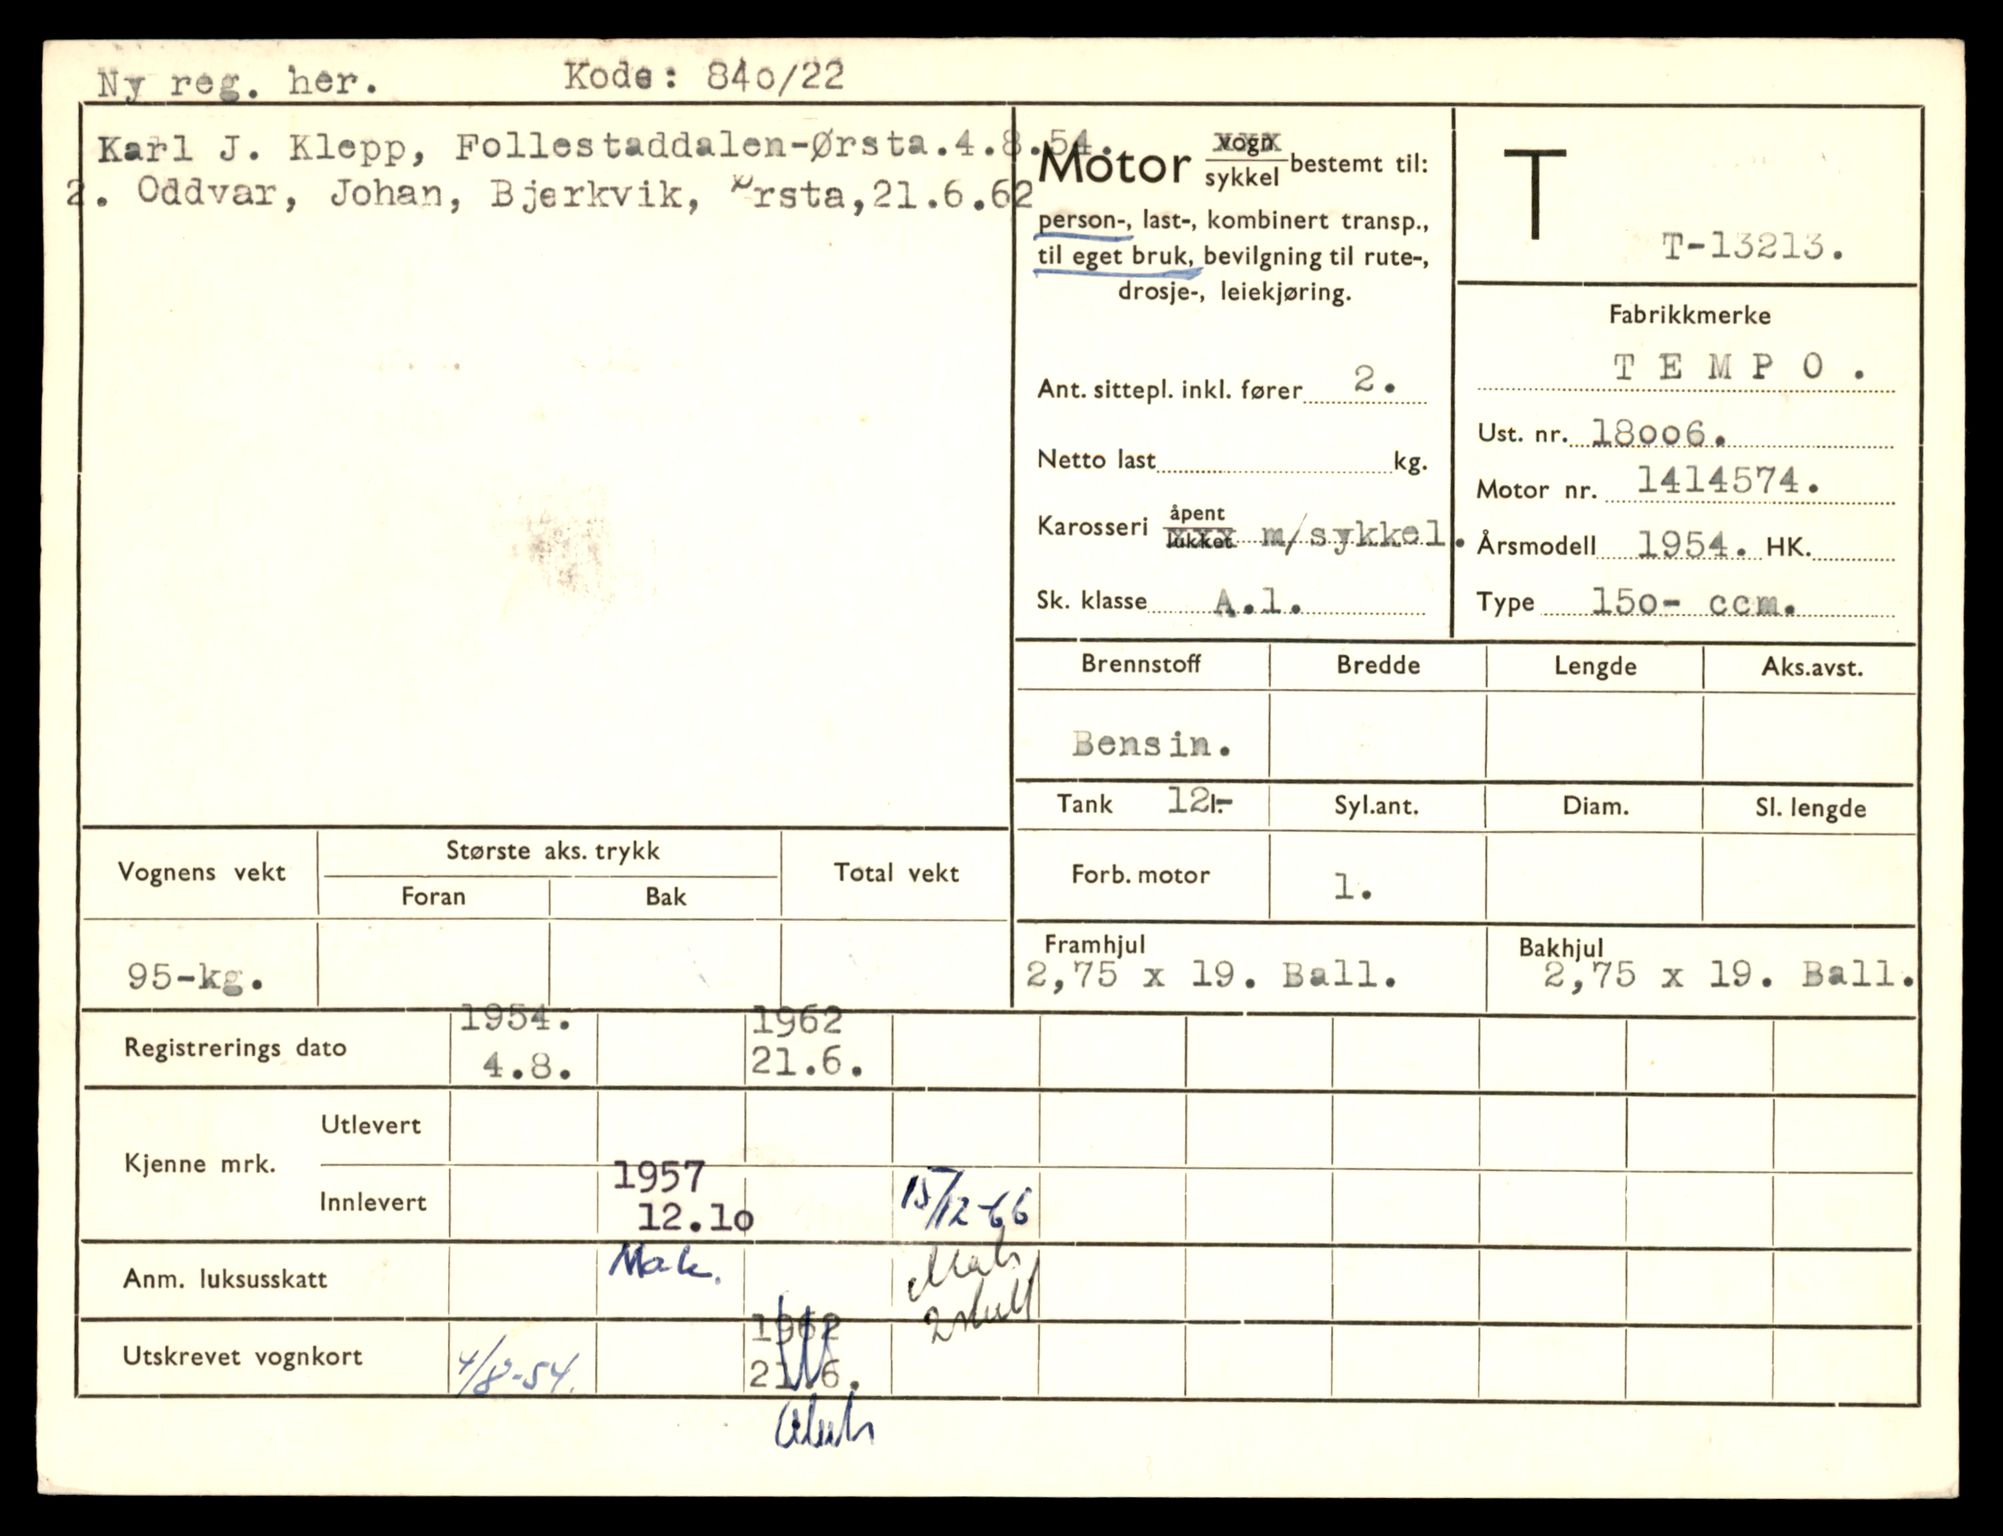 Ny reg. her. Kode: 84o/22
Karl J. Klepp, Follestaddalen-Ørsta.4.8.54.
2. Oddvar, Johan, Bjerkvik, Ørsta,21.6.62
Motor vogn/sykkel bestemt til:
person-, last-, kombinert transp.,
til eget bruk, bevilgning til rute-,
drosje-, leiekjøring.
Ant. sittepl. inkl. fører 2.
Netto last kg.
Karosseri åpent/lukket m/sykkel.
Sk. klasse A.1.
T
T-13213.
Fabrikkmerke
T E M P O .
Ust. nr. 18oo6.
Motor nr. 1414574.
Årsmodell 1954. HK.
Type 15o- ccm.
Brennstoff Bredde Lengde Aks.avst.
Bensin.
Tank 12l.- Syl.ant. Diam. Sl. lengde
Forb. motor 1.
Framhjul Bakhjul
2,75 x 19. Ball. 2,75 x 19. Ball.
Vognens vekt Største aks. trykk Total vekt
Foran Bak
95-kg.
1954. 1962
Registrerings dato 4.8. 21.6.
Kjenne mrk. Utlevert
Innlevert 1957 12.1o 15/12-66
Anm. luksusskatt Mak.
1962
Utskrevet vognkort 4/8-54. 21.6.